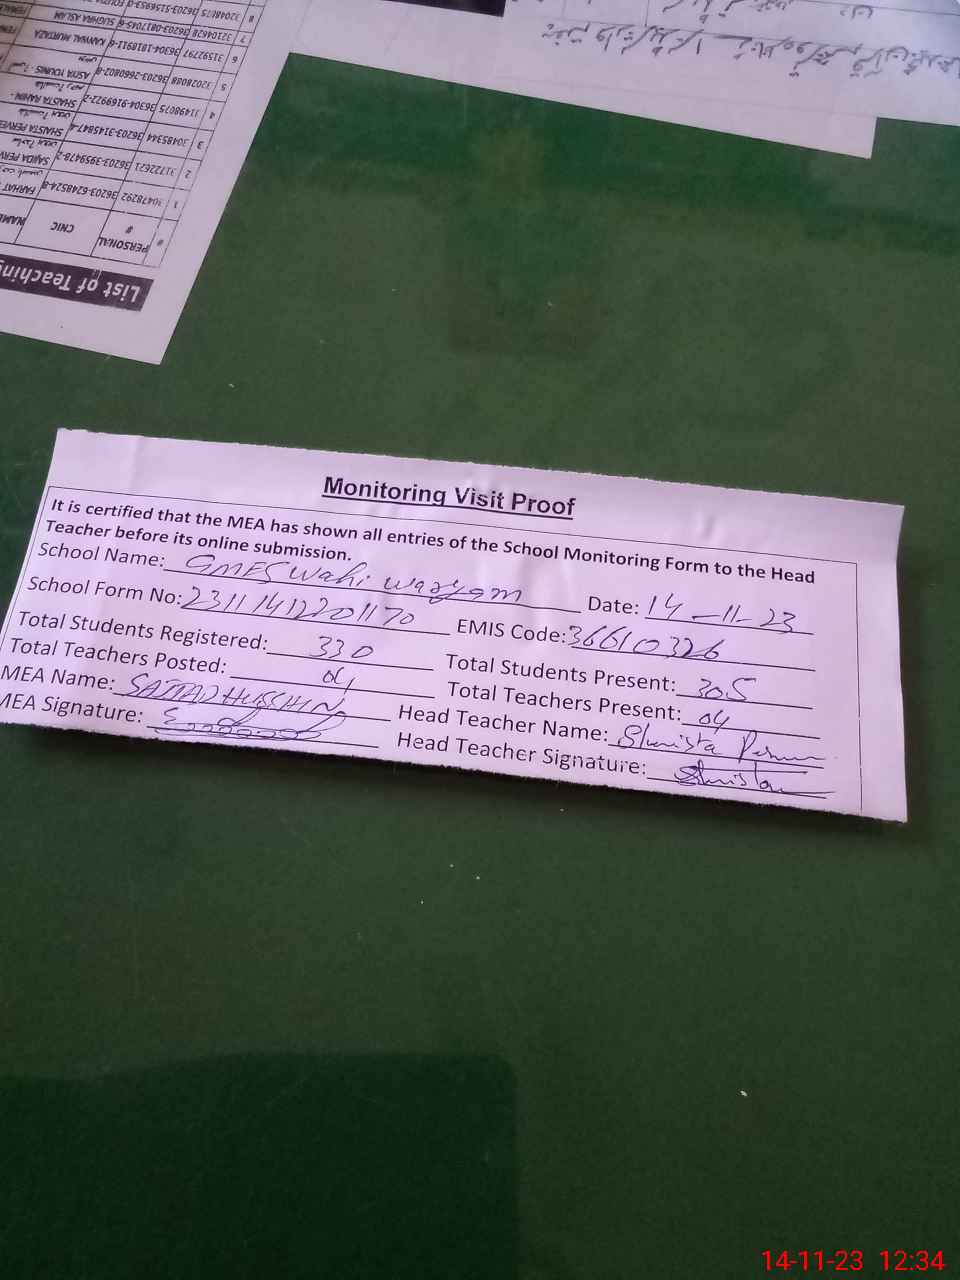 Monitoring Visit Proof
It is certified that the MEA has shown all entries of the School Monitoring Form to the Head
Teacher before its online submission.
School Name: GMES Wahi Waryam Date: 14-11-23
School Form No: EMIS Code: 36610326
Total Students Registered: 330 Total Students Present: 305
Total Teachers Posted: 04 Total Teachers Present: 04
MEA Name: SAJJAD HUSSAIN Head Teacher Name: Shaista
MEA Signature: Head Teacher Signature: Shaista
List of Teaching
# PERSONAL # CNIC NAME
1 30478292 36203-6248524-8 FARHAT
2 31722621 36203-3959478-2 SAJIDA PERV
3 30485344 36203-3145847-4 SHAISTA PERVE
4 31498075 36304-9169922-2 SHAISTA RAHIM
5 32028088 36203-2660802-8 ASIYA YOUNIS
6 31592797 36304-1818911-6 KANWAL MURTAZA
7 32104628 36203-0817045-6 SUGHRA ASLAM
8 32048075 36203-5156953-0
14-11-23 12:34